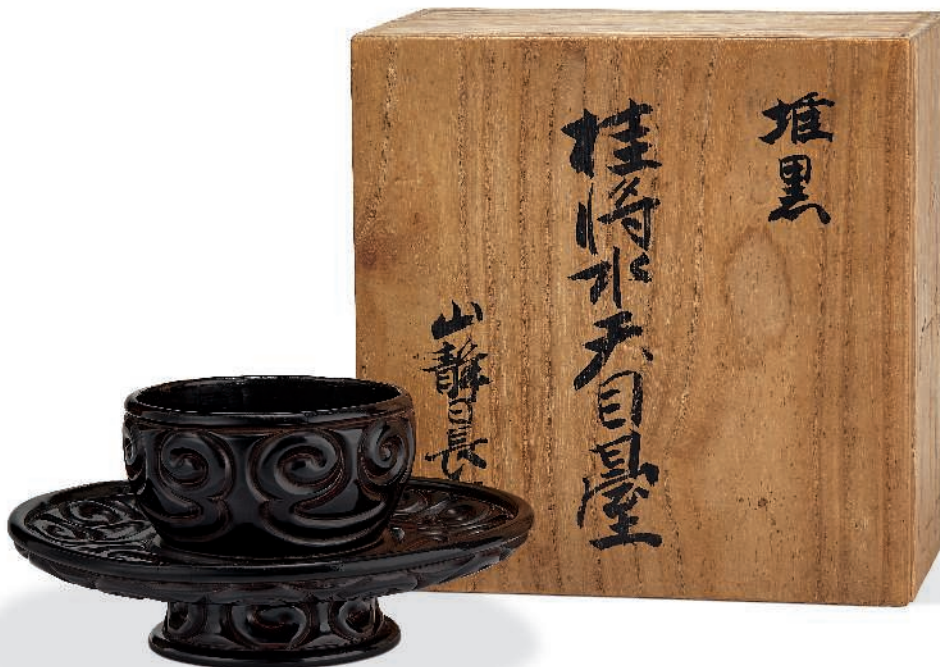 堆黒
桂將水天目臺
山靜日長